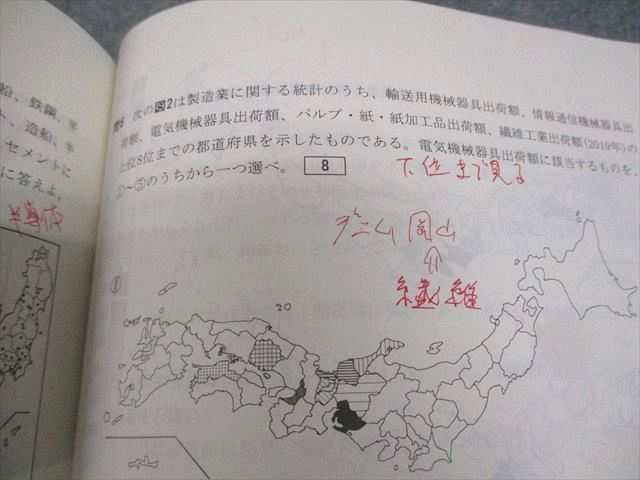 船、鉄鋼、半
ト、造船、半
セメントに
に答えよ。
半導体
問8 次の図2は製造業に関する統計のうち、輸送用機械器具出荷額、情報通信機械器具出
荷額、電気機械器具出荷額、パルプ・紙・紙加工品出荷額、繊維工業出荷額(2019年)の
上位8位までの都道府県を示したものである。電気機械器具出荷額に該当するものを、
①~⑤のうちから一つ選べ。 8
下位まで見る
デニム 岡山
繊維
①